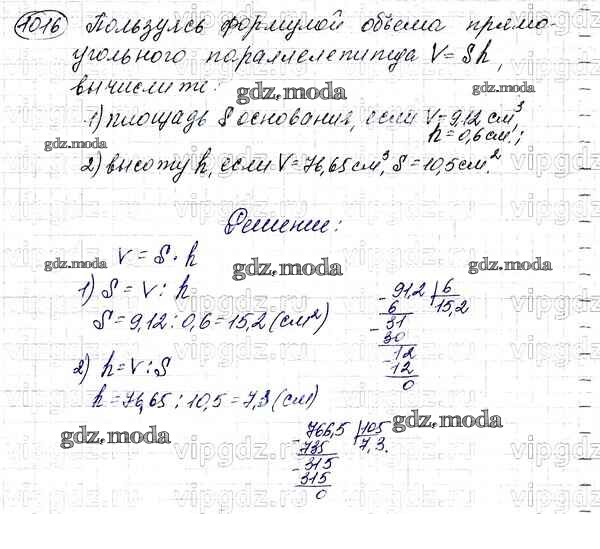 1016 Пользуясь формулой объема прямо-
угольного параллелепипеда V = Sh,
вычислите:
gdz.moda
1) площадь S основания, если V = 9,12 см³
h = 0,6 см;
gdz.moda
2) высоту h, если V = 76,65 см³, S = 10,5 см².
gdz.moda
Решение:
V = S · h
gdz.moda
gdz.moda
gdz.moda
1) S = V : h
S = 9,12 : 0,6 = 15,2 (см²)
91,2 6
6 15,2
31
30
12
12
0
2) h = V : S
h = 76,65 : 10,5 = 7,3 (см)
gdz.moda
gdz.moda
766,5 105
735 7,3.
315
315
0
gdz.moda
vipgdz.ru